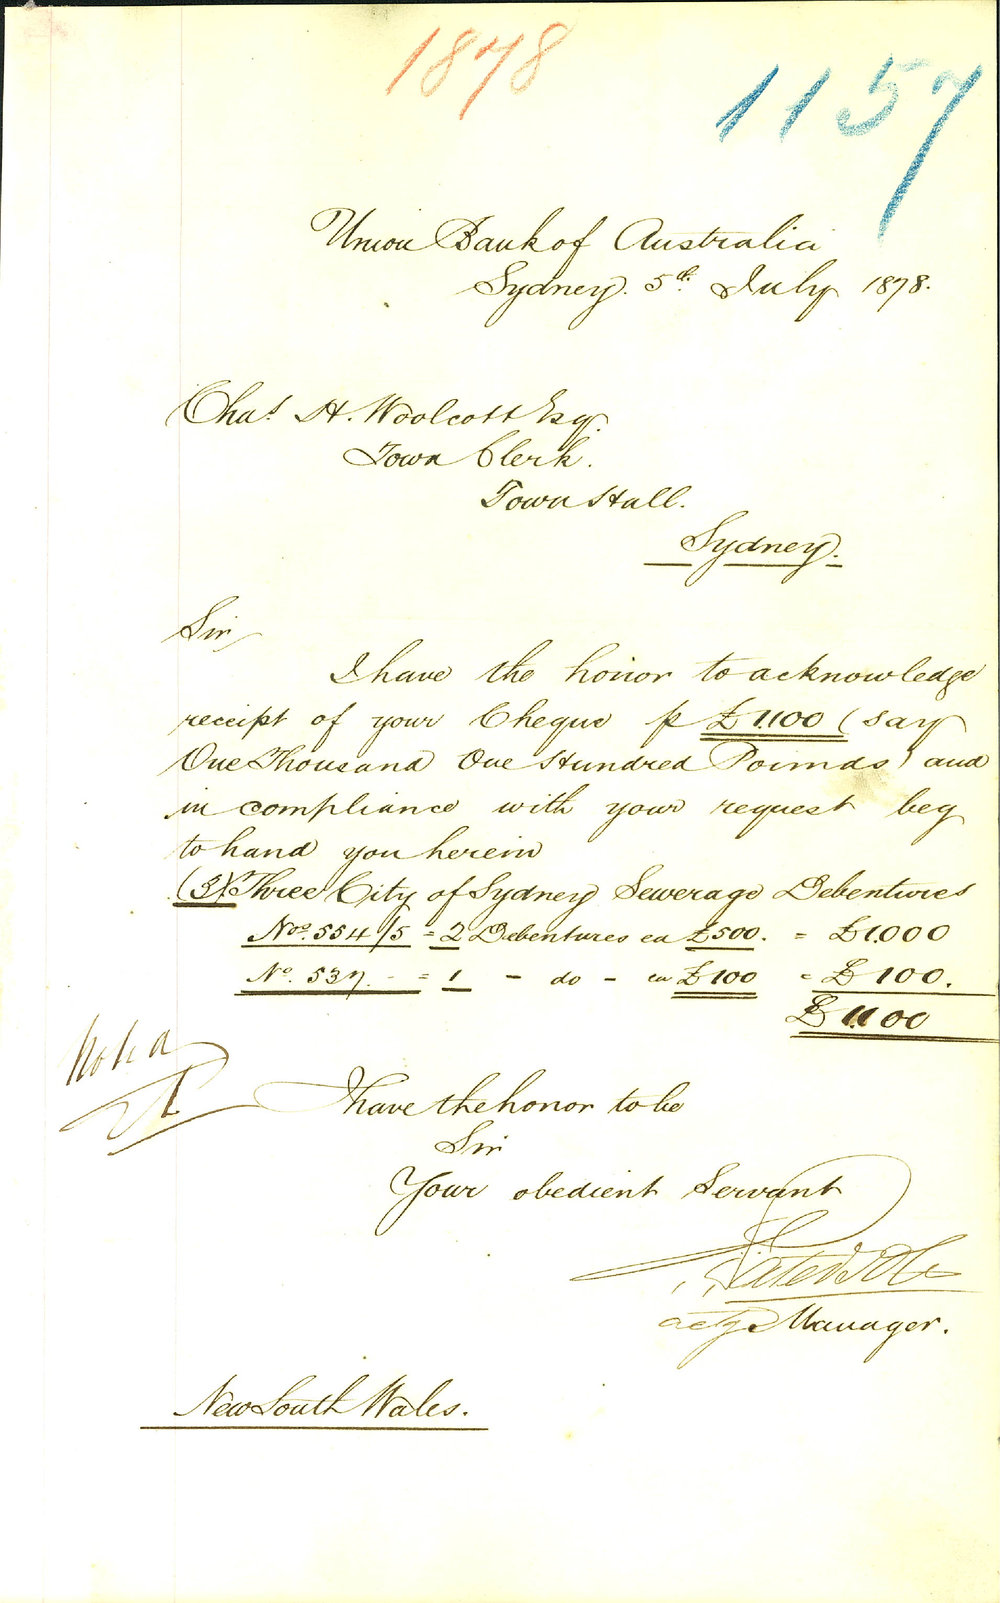 1878
1157
Union Bank of Australia
Sydney. 5th July 1878.
Chas H. Woolcott Esq.
Town Clerk.
Town Hall.
Sydney.
Sir
I have the honor to acknowledge
receipt of your Cheque p £1.100 (say
One Thousand One Hundred Pounds) and
in compliance with your request beg
to hand you herein
(3) Three City of Sydney Sewerage Debentures
Nos. 554/5 = 2 Debentures ea £500. = £1.000
No. 537. - = 1 - do - ea £100 = £100.
£1.100
I have the honor to be
Sir
Your obedient Servant
actg Manager.
New South Wales.